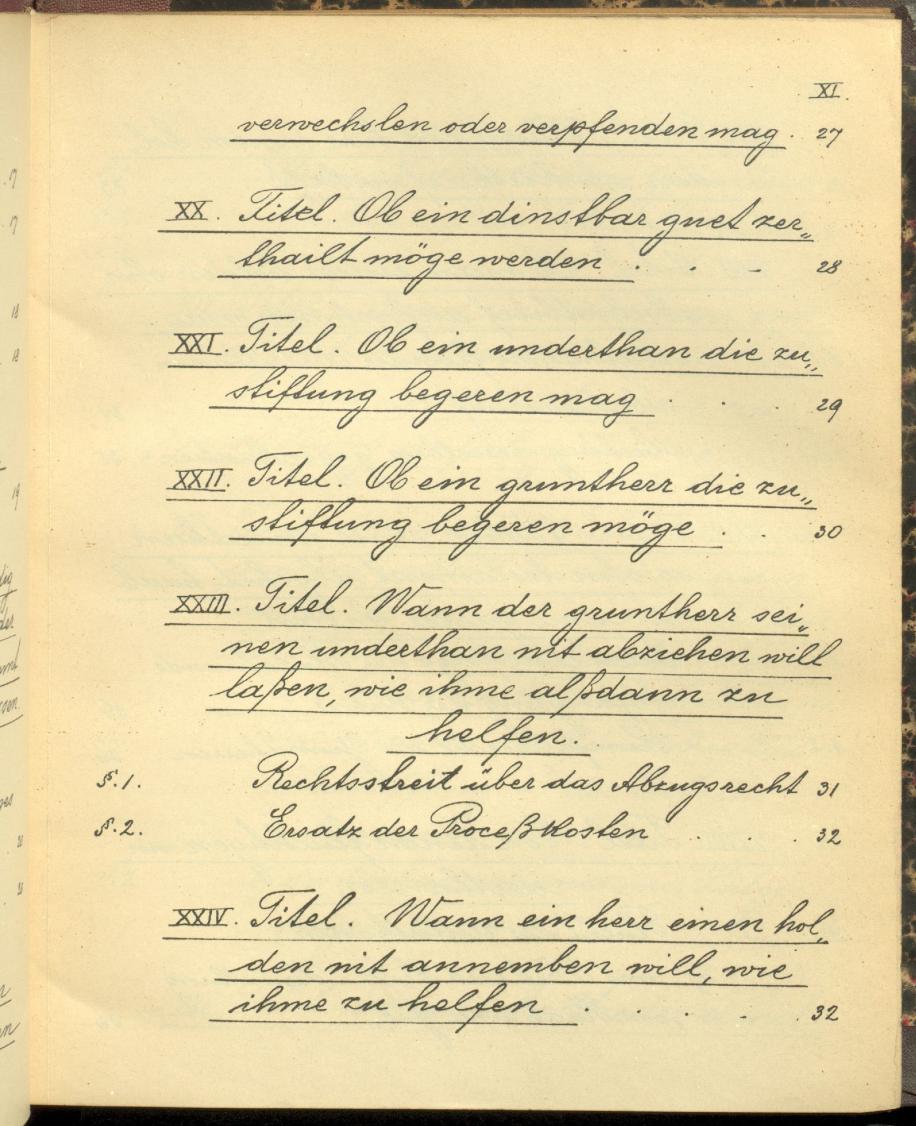 XI.
verwechslen oder verpfenden mag. 27
XX. Titel. Ob ein dinstbar guet zer„
thailt möge werden . . . 28
XXI. Titel. Ob ein underthan die zu„
stiftung begeren mag . . . 29
XXII. Titel. Ob ein gruntherr die zu„
stiftung begeren möge . . . 30
XXIII. Titel. Wann der gruntherr sei„
nen underthan nit abziehen will
laßen, wie ihme alßdann zu
helfen.
§.1. Rechtsstreit über das Abzugsrecht 31
§.2. Ersatz der Proceßkosten . . . 32
XXIV. Titel. Wann ein herr einen hol„
den nit annemben will, wie
ihme zu helfen . . . . . 32